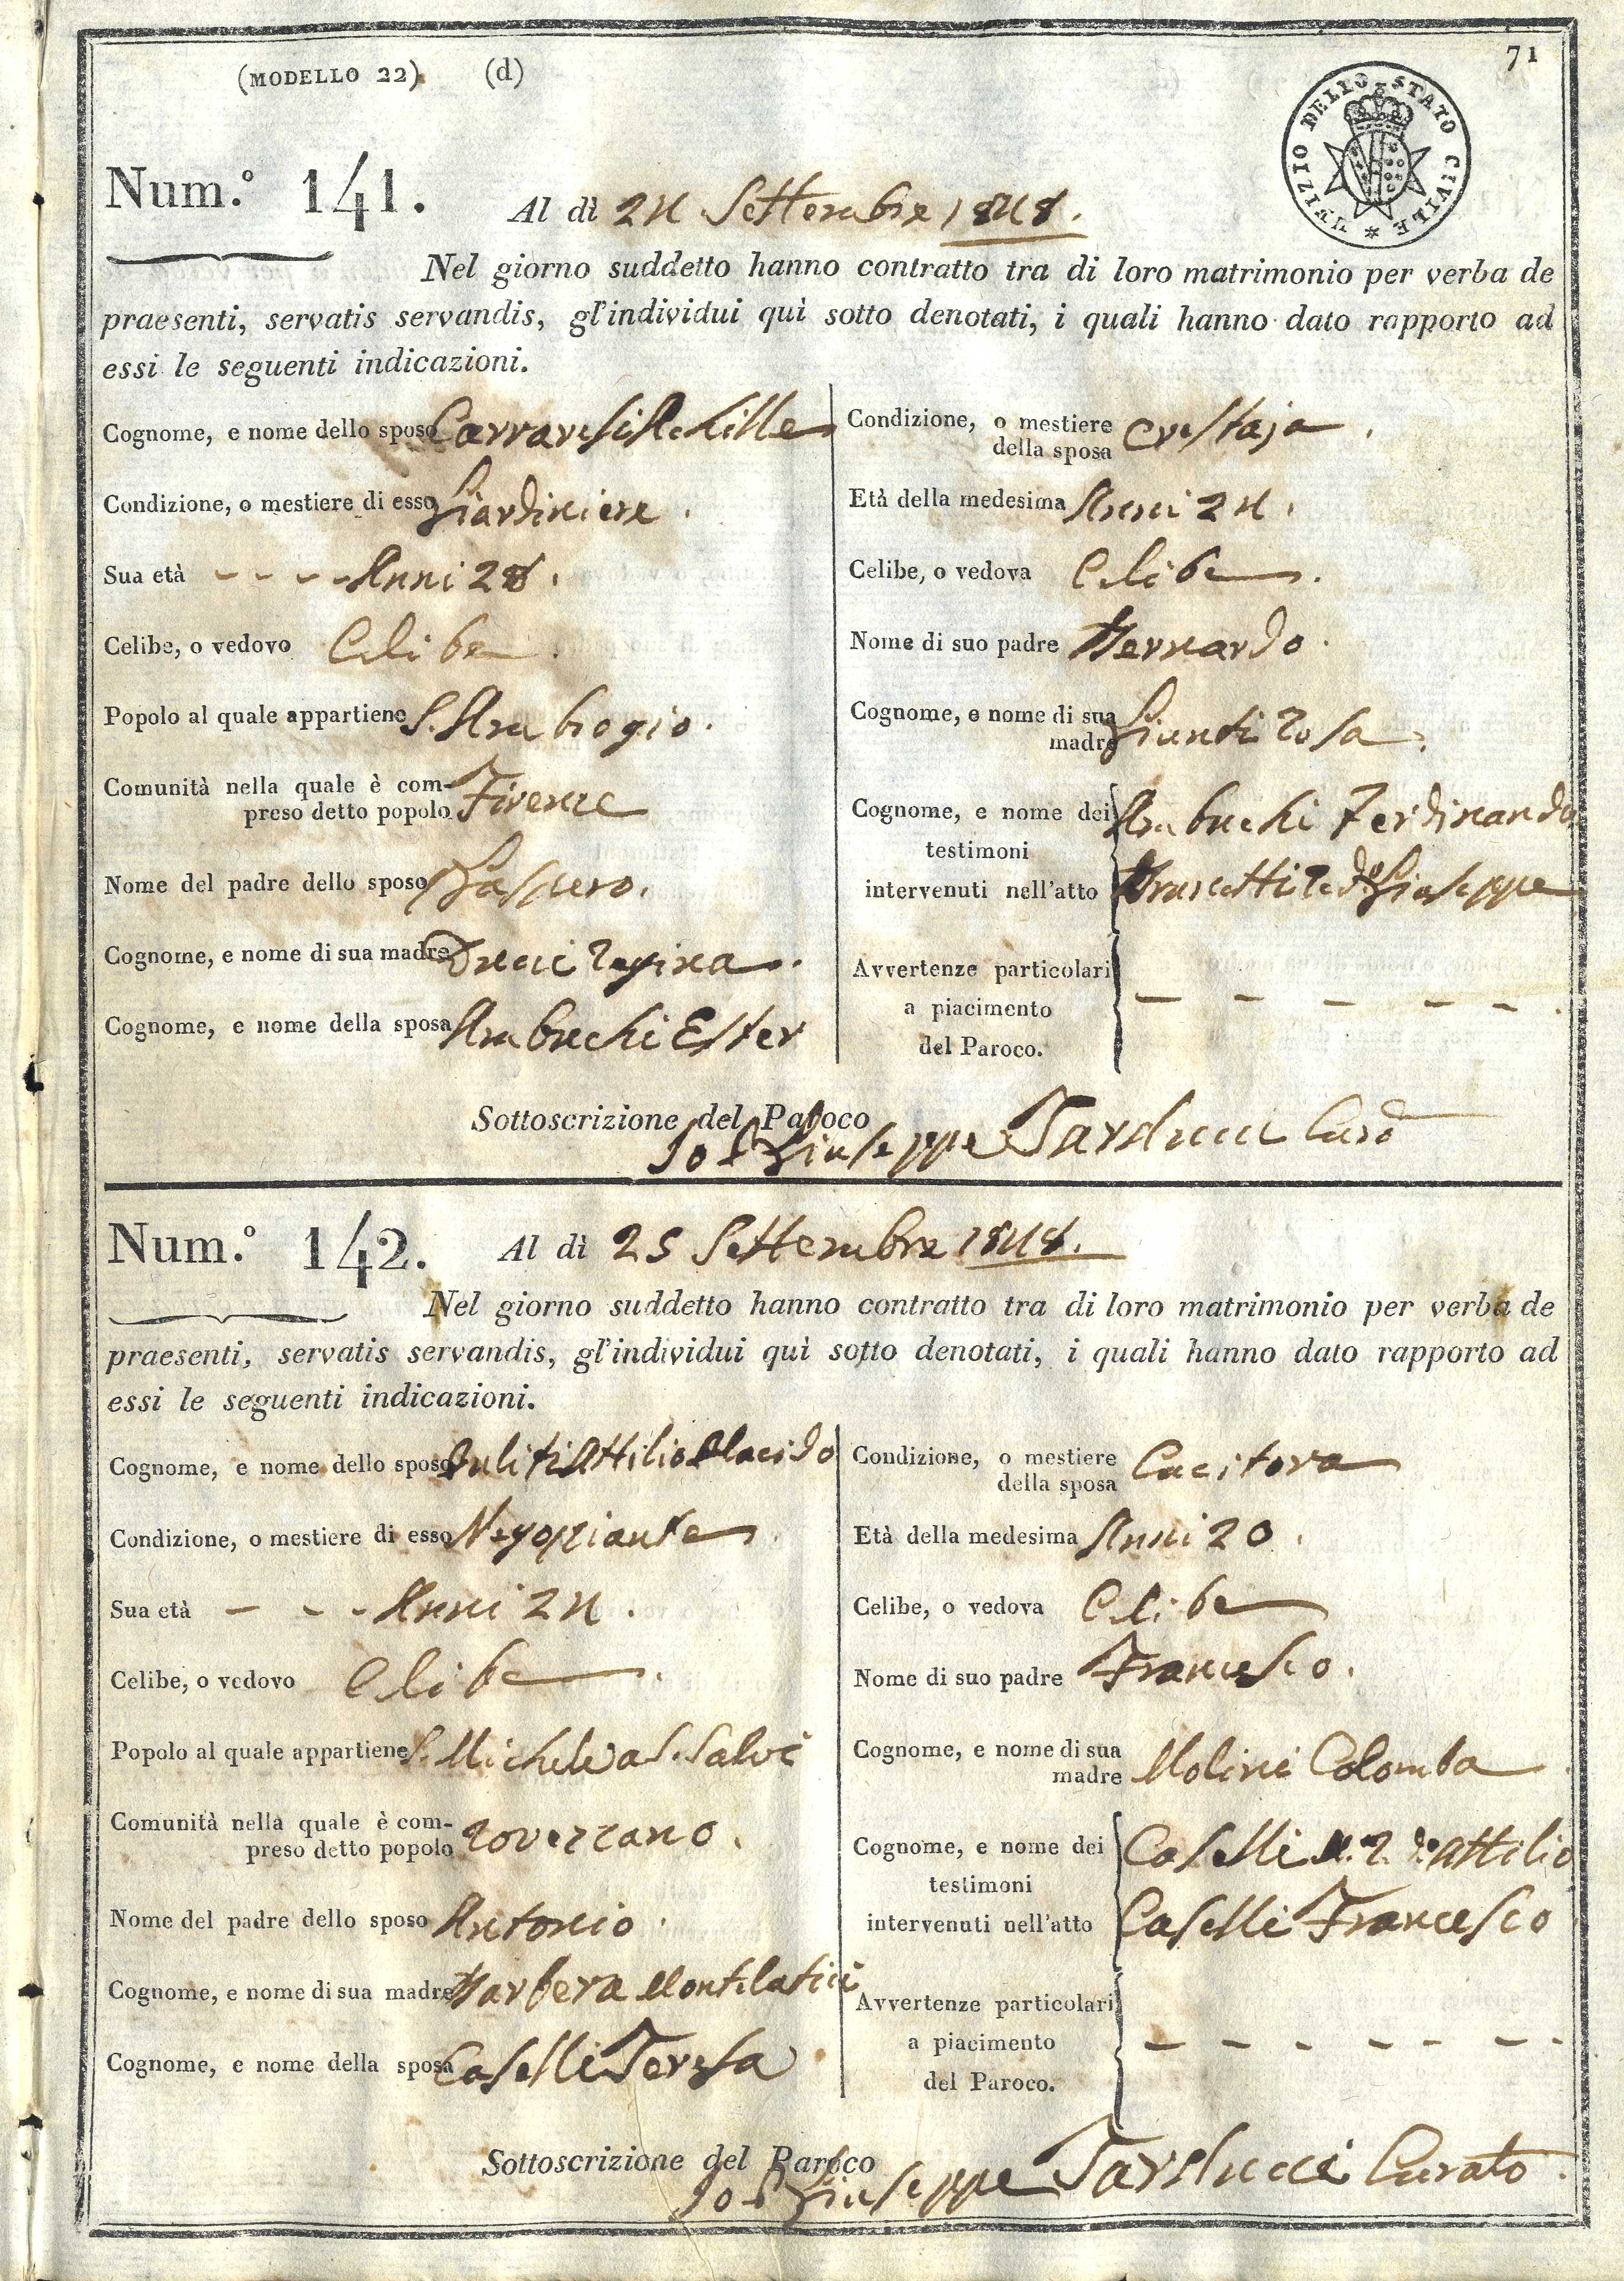 71
(MODELLO 22) (d)
UFIZIO DELLO STATO CIVILE *
Num.° 141. Al dì 24 Settembre 1848.
Nel giorno suddetto hanno contratto tra di loro matrimonio per verba de
praesenti, servatis servandis, gl'individui quì sotto denotati, i quali hanno dato rapporto ad
essi le seguenti indicazioni.
Cognome, e nome dello sposo Carraresi Achille
Condizione, o mestiere di esso Giardiniere.
Sua età - - - - Anni 28.
Celibe, o vedovo Celibe.
Popolo al quale appartiene S. Ambrogio.
Comunità nella quale è com-
preso detto popolo Firenze
Nome del padre dello sposo Gaspero.
Cognome, e nome di sua madre Regina.
Cognome, e nome della sposa Ambuchi Ester
Condizione, o mestiere
della sposa Crestaja.
Età della medesima Anni 24.
Celibe, o vedova Celibe.
Nome di suo padre Bernardo.
Cognome, e nome di sua
madre Giunti Rosa.
Cognome, e nome dei Ambuchi Ferdinando
testimoni
intervenuti nell'atto Giuseppe
Avvertenze particolari
a piacimento - - - - -.
del Paroco.
Sottoscrizione del Paroco
Io P. Giuseppe Tarducci Curo
Num.° 142. Al dì 25 Settembre 1848.
Nel giorno suddetto hanno contratto tra di loro matrimonio per verba de
praesenti, servatis servandis, gl'individui quì sotto denotati, i quali hanno dato rapporto ad
essi le seguenti indicazioni.
Cognome, e nome dello sposo Puliti Attilio Placido
Condizione, o mestiere di esso Negoziante
Sua età - - - Anni 24.
Celibe, o vedovo Celibe.
Popolo al quale appartiene S. Michele a S. Salvi
Comunità nella quale è com-
preso detto popolo Rovezzano.
Nome del padre dello sposo Antonio.
Cognome, e nome di sua madre Barbera Montelatici
Cognome, e nome della sposa Caselli Teresa
Condizione, o mestiere
della sposa Cucitora
Età della medesima Anni 20.
Celibe, o vedova Celibe
Nome di suo padre Francesco.
Cognome, e nome di sua
madre Molini Colomba
Cognome, e nome dei Caselli Attilio
testimoni
intervenuti nell'atto Caselli Francesco
Avvertenze particolari
a piacimento - - - - - - -.
del Paroco.
Sottoscrizione del Paroco
Io P. Giuseppe Tarducci Curato.